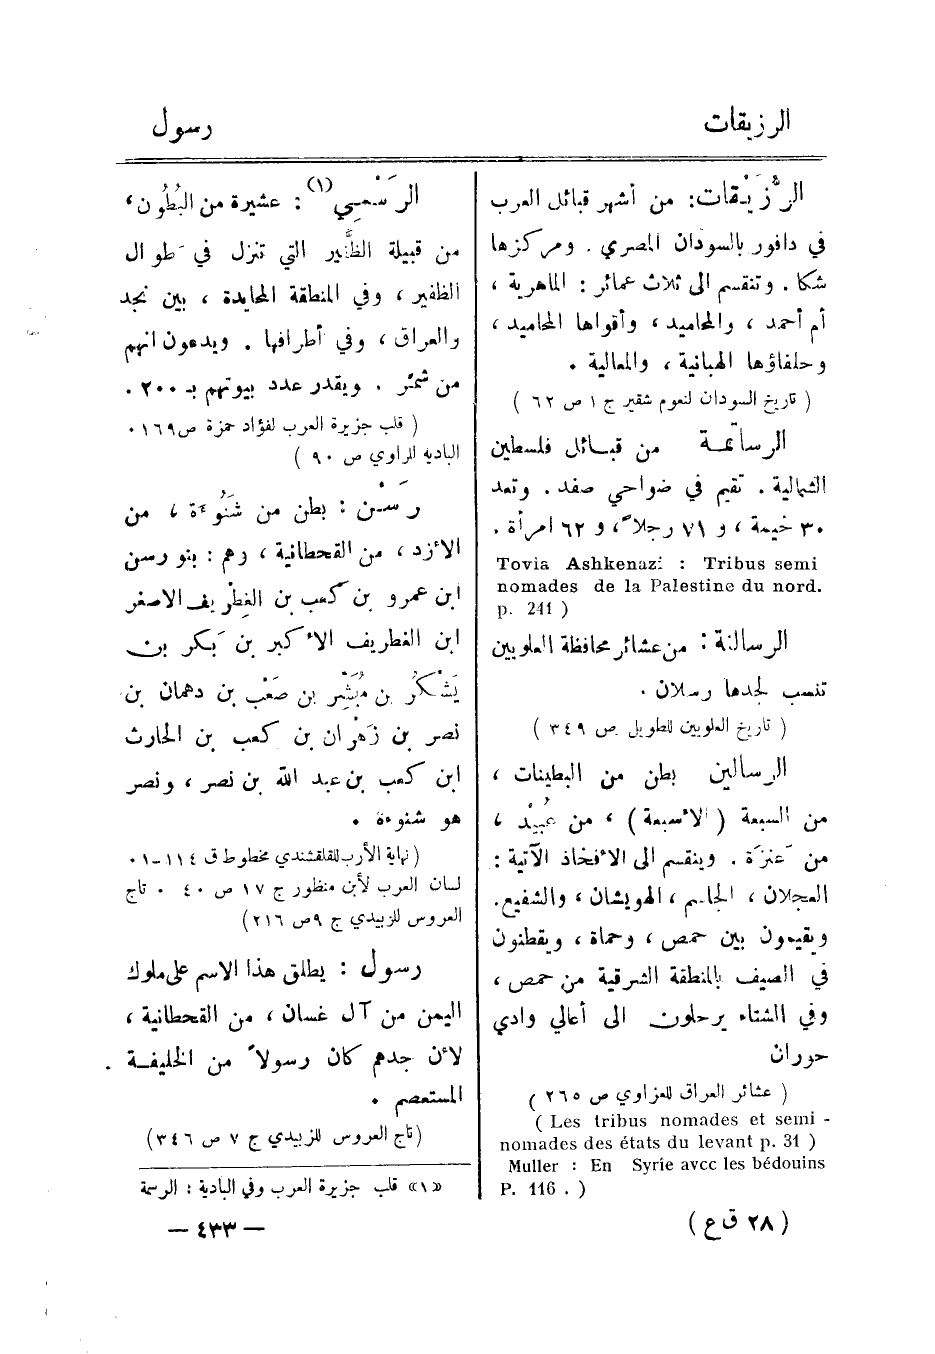 الرزيقات
رسول
الرُّزَيْقات: من أشهر قبائل العرب
في دافور بالسودان المصري . ومركزها
شكا . وتنقسم الى ثلاث عمائر : الماهرية ،
أم أحمد ، والمحاميد ، وأقواها المحاميد ،
وحلفاؤها الهبانية ، والمعالية .
( تاريخ السودان لنعوم شقير ج ١ ص ٦٢ )
الرساتمة من قبائل فلسطين
الشمالية . تقيم في ضواحي صفد . وتعد
٣٠ خيمة ، و ٧١ رجلاً ، و ٦٢ امرأة .
Tovia Ashkenazi : Tribus semi
nomades de la Palestine du nord.
p. 241 )
الرسالنة : من عشائر محافظة العلويين
تنسب لجدها رسلان .
( تاريخ العلويين للطويل ص ٣٤٩ )
الرسالين بطن من البطينات ،
من السبعة ( الأسبعة ) ، من عُبَيْد ،
من عَنَزَة . وينقسم الى الأفخاذ الآتية :
العجلان ، الجاسم ، الهويشان ، والشفيع.
ويقيمون بين حمص ، وحماة ، ويقطنون
في الصيف بالمنطقة الشرقية من حمص ،
وفي الشتاء يرحلون الى أعالي وادي
حوران
( عشائر العراق للعزاوي ص ٢٦٥ )
( Les tribus nomades et semi -
nomades des états du levant p. 31 )
Muller : En Syrie avec les bédouins
P. 116 . )
( ٢٨ ق ع )
الرَسْمِي (١) : عشيرة من البُطُون ،
من قبيلة الظَّفير التي تنزل في طوال
الظفير ، وفي المنطقة المحايدة ، بين نجد
والعراق ، وفي أطرافها . ويدعون انهم
من شَمَّر . ويقدر عدد بيوتهم بـ ٢٠٠ .
( قلب جزيرة العرب لفؤاد حمزة ص ١٦٩ .
البادية للراوي ص ٩٠ )
رَسْن : بطن من شَنُوءَة ، من
الأزد ، من القحطانية ، وهم : بنو رسن
ابن عمرو بن كعب بن الغِطْريف الاصغر
ابن الغطريف الأكبر بن بَكر بن
يَشْكُر بن مُبَشِّر بن صَعْب بن دهمان بن
نصر بن زَهْران بن كعب بن الحارث
ابن كعب بن عبد الله بن نصر ، ونصر
هو شنوءة .
( نهاية الأرب للقلقشندي مخطوط ق ١١٤-١ .
لسان العرب لأبن منظور ج ١٧ ص ٤٠ . تاج
العروس للزبيدي ج ٩ ص ٢١٦ )
رسول : يطلق هذا الاسم على ملوك
اليمن من آل غسان ، من القحطانية ،
لأن جدهم كان رسولاً من الخليفة
المستعصم .
( تاج العروس للزبيدي ج ٧ ص ٣٤٦ )
«١» قلب جزيرة العرب وفي البادية : الرسمة
— ٤٣٣ —